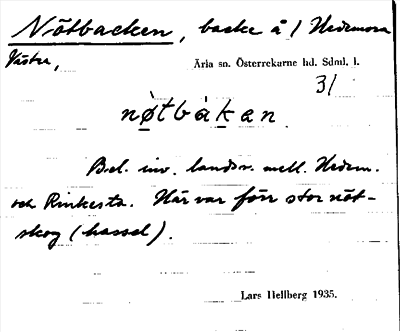 Nötbacken, backe å / Hedemora
Västra,
Ärla sn. Österrekarne hd. Sdml. l.
31
nø̀tbàkan
Bel. inv. landsv. mell. Hedem.
och Rinkesta. Här var förr stor nöt-
skog (hassel).
Lars Hellberg 1935.